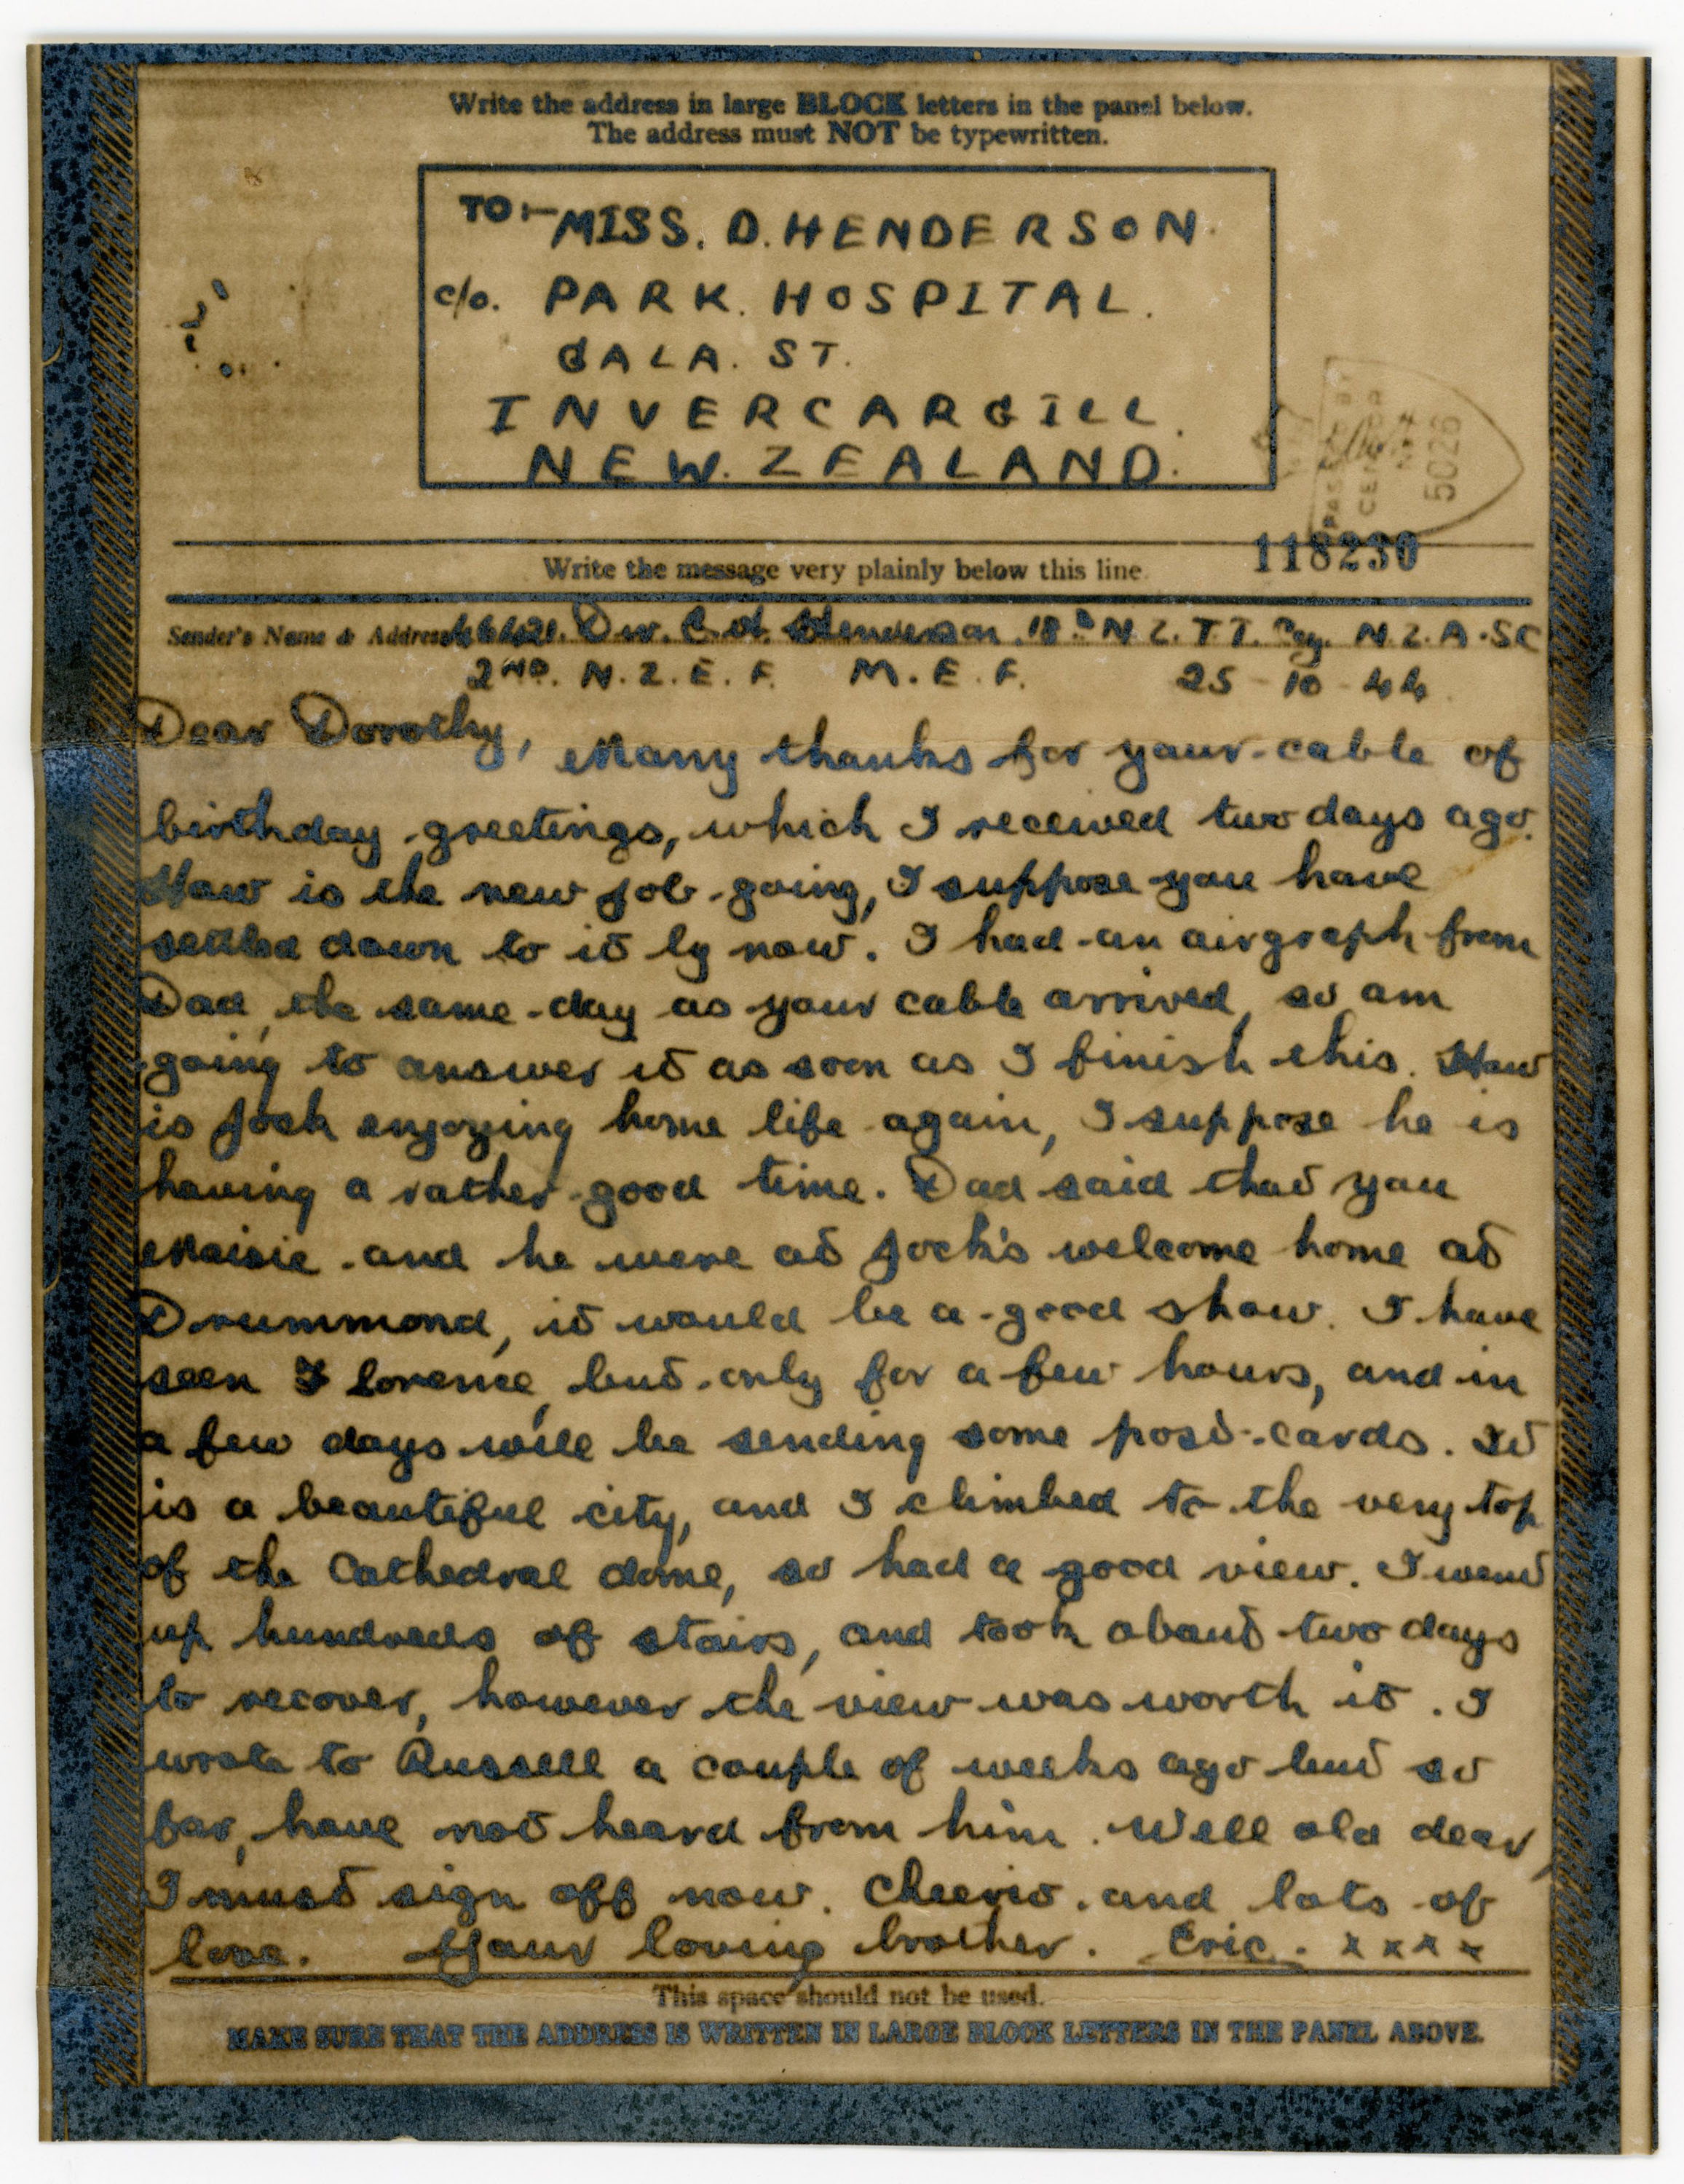 Write the address in large BLOCK letters in the panel below.
The address must NOT be typewritten.
TO:- MISS. D. HENDERSON.
c/o. PARK. HOSPITAL.
GALA. ST.
INVERCARGILL.
NEW. ZEALAND.
PASSED BY
CENSOR
No.
5026
118230
Write the message very plainly below this line.
Sender's Name & Address Dvr. Henderson. 18th N.Z.T.T. Coy. N.Z.A.SC
2ND. N.Z.E.F. M.E.F. 25-10-44.
Dear Dorothy, Many thanks for your cable of
birthday greetings, which I received two days ago.
How is the new job going, I suppose you have
settled down to it by now. I had an airgraph from
Dad, the same day as your cable arrived, so am
going to answer it as soon as I finish this. How
is Jock enjoying home life again, I suppose he is
having a rather good time. Dad said that you
Maisie and he were at Jock's welcome home at
Drummond, it would be a good show. I have
seen Florence, but only for a few hours, and in
a few days will be sending some post-cards. It
is a beautiful city, and I climbed to the very top
of the Cathedral dome, so had a good view. I went
up hundreds of stairs, and took about two days
to recover, however the view was worth it. I
wrote to Russell a couple of weeks ago but so
far, have not heard from him. Well old dear,
I must sign off now. Cheerio. and lots of
love. Your loving brother. Eric. x x x x
This space should not be used.
MAKE SURE THAT THE ADDRESS IS WRITTEN IN LARGE BLOCK LETTERS IN THE PANEL ABOVE.